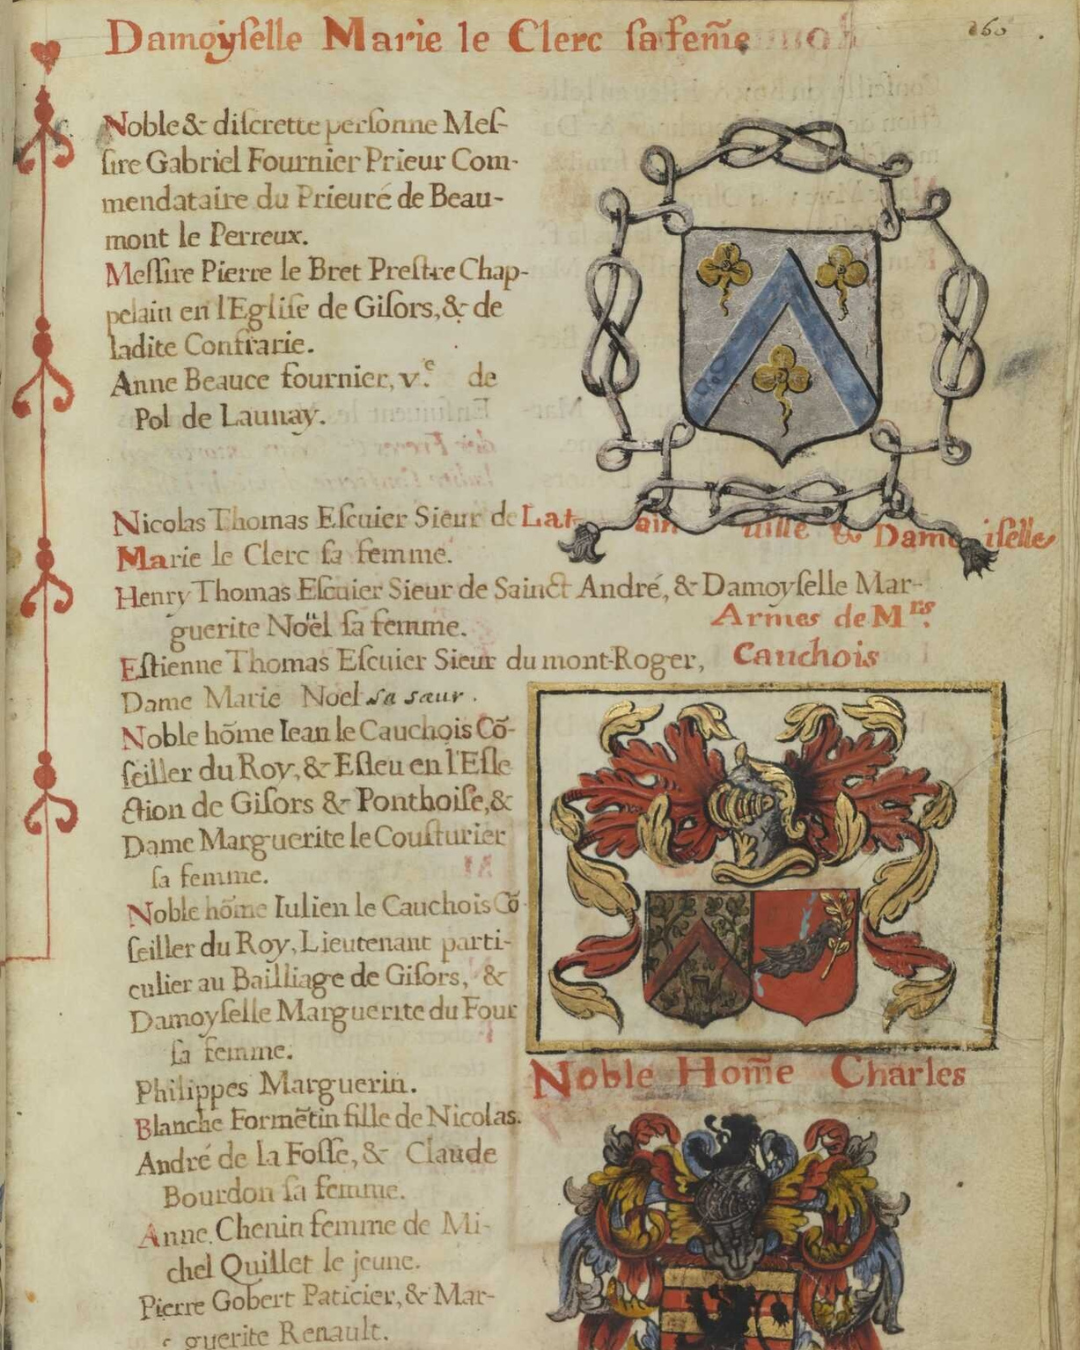 Damoyſelle Marie le Clerc ſa fem̃e
160
Noble & diſcrette perſonne Meſ-
ſire Gabriel Fournier Prieur Com-
mendataire du Prieuré de Beau-
mont le Perreux.
Meſſire Pierre le Bret Preſtre Chap-
pelain en l'Egliſe de Giſors, & de
ladite Confrarie.
Anne Beauce fournier, v.e de
Pol de Launay.
Nicolas Thomas Eſcuier Sieur de Lat ain uille & Damo iſelle
Marie le Clerc ſa femme.
Henry Thomas Eſcuier Sieur de Sainct André, & Damoyſelle Mar-
guerite Noël ſa femme.
Armes de Mrs.
Eſtienne Thomas Eſcuier Sieur du mont-Roger,
Cauchois
Dame Marie Noel sa sœur.
Noble hõme Iean le Cauchois Cõ-
ſeiller du Roy, & Eſleu en l'Eſle
ction de Giſors & Ponthoiſe, &
Dame Marguerite le Couſturier
ſa femme.
Noble hõme Iulien le Cauchois Cõ
ſeiller du Roy, Lieutenant parti-
culier au Bailliage de Giſors, &
Damoyſelle Marguerite du Four
ſa femme.
Noble Hom̃e Charles
Philippes Marguerin.
Blanche Formẽtin fille de Nicolas.
André de la Foſſe, & Claude
Bourdon ſa femme.
Anne Chenin femme de Mi-
chel Quillet le jeune.
Pierre Gobert Paticier, & Mar-
guerite Renault.